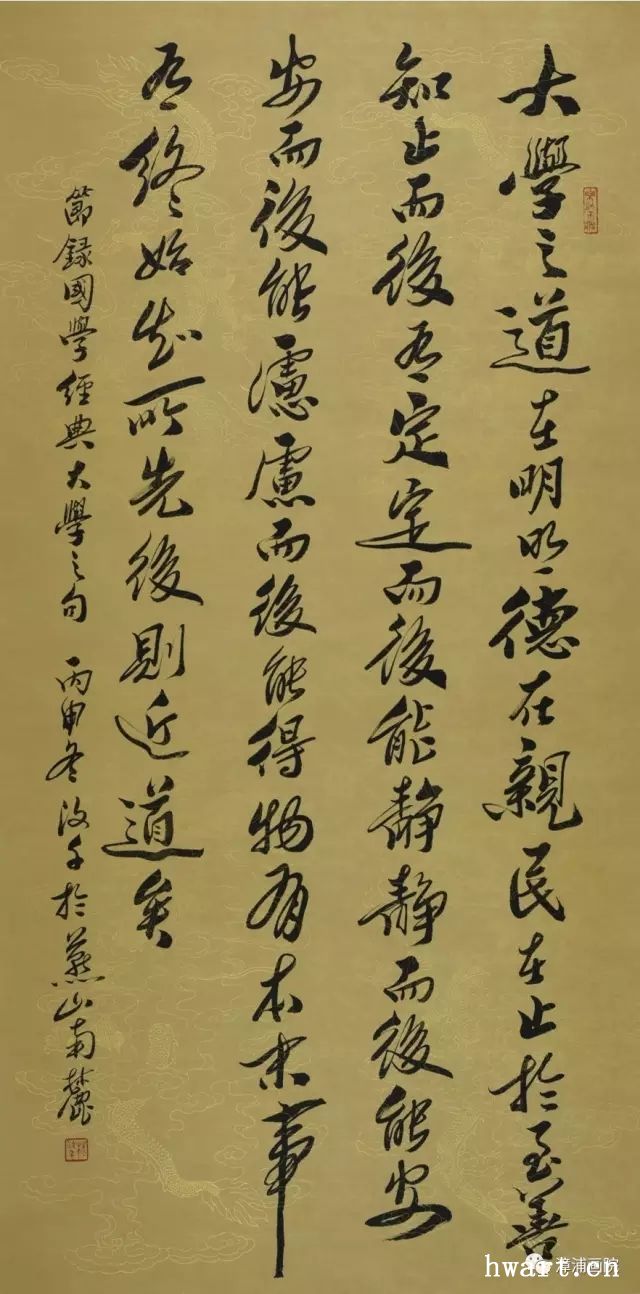 大學之道在明明德在親民在止於至善
知止而後有定定而後能靜靜而後能安
安而後能慮慮而後能得物有本末事
有終終始知所先後則近道矣
節録國學經典大學之句 丙申冬汝千於燕山南麓
漳浦画院
hwart.cn